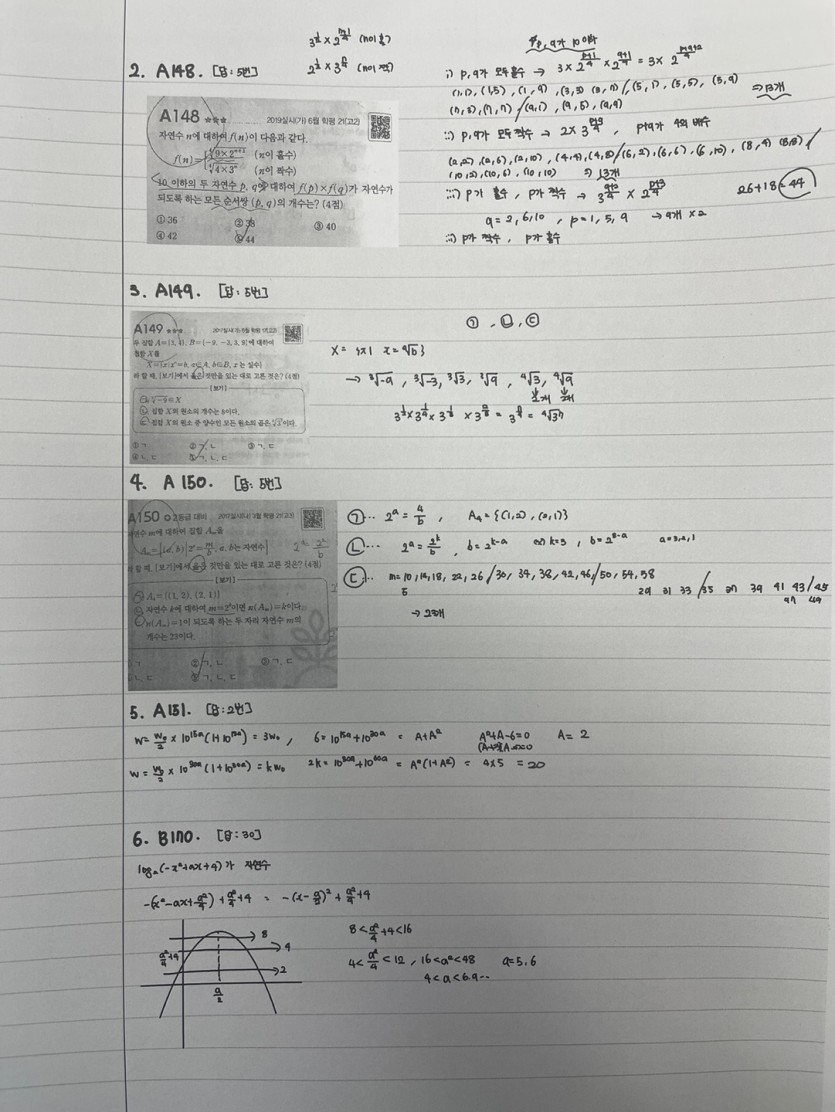 2. A148. [답: 5번]
3^½ × 2^(n+1)/4 (n이 홀)
2^½ × 3^n/4 (n이 짝)
A148 ★★★ 2019실시(가) 6월 학평 21(고2)
자연수 n에 대하여 f(n)이 다음과 같다.
f(n) = { ⁴√(9×2ⁿ⁺¹) (n이 홀수)
⁴√(4×3ⁿ) (n이 짝수)
10 이하의 두 자연수 p, q에 대하여 f(p)×f(q)가 자연수가
되도록 하는 모든 순서쌍 (p, q)의 개수는? (4점)
① 36 ② 38 ③ 40
④ 42 ⑤ 44
p, q가 10 이하
i) p, q가 모두 홀수 → 3 × 2^(p+1)/4 × 2^(q+1)/4 = 3 × 2^(p+q+2)/4
⇒ 13개
ii) p, q가 모두 짝수 → 2 × 3^(p+q)/4, p+q가 4의 배수
(2,2) (2,6), (2,10), (4,4), (4,8) / (6,2), (6,6), (6,10), (8,4) (8,8) /
(10,2), (10,6), (10,10) ⇒ 13개
iii) p가 홀수, p가 짝수 →
q = 2, 6, 10, p = 1, 5, 9 → 9개 × 2
26+18 = 44
p가 짝수, p가 홀수
3. A149. [답: 5번]
A149 ★★★
두 집합 A={3, 4}, B={-9, -3, 3, 9}에 대하여
집합 X를
X={x|xᵃ=b, a∈A, b∈B, x는 실수}
라 할 때, [보기]에서 옳은 것만을 있는 대로 고른 것은? (4점)
[보기]
ㄱ. ³√-9 ∈ X
ㄴ. 집합 X의 원소의 개수는 8이다.
① ㄱ ② ㄱ, ㄴ ③ ㄱ, ㄷ
④ ㄴ, ㄷ ⑤ ㄱ, ㄴ, ㄷ
㉠, ㉡, ㉢
X = {x | x = ᵃ√b }
→ ³√-9, ³√-3, ³√3, ³√9, ⁴√3, ⁴√9
2개 2개
4. A150. [답: 5번]
A150 2등급 대비 2017실시(나) 3월 학평 21(고3)
자연수 m에 대하여 집합 Aₘ을
Aₘ = {(a, b) | 2ᵃ = m/b, a, b는 자연수}
라 할 때, [보기]에서 옳은 것만을 있는 대로 고른 것은? (4점)
[보기]
ㄱ. A₄={(1, 2), (2, 1)}
ㄴ. 자연수 k에 대하여 m=2ᵏ이면 n(Aₘ)=k이다.
ㄷ. n(Aₘ)=1이 되도록 하는 두 자리 자연수 m의
개수는 23이다.
② ㄱ, ㄴ ③ ㄱ, ㄷ
ㄴ, ㄷ ⑤ ㄱ, ㄴ, ㄷ
㉠ … 2ᵃ = 4/b, A₄ = {(1,2), (2,1)}
㉡ … 2ᵃ = 2ᵏ/b, b = 2ᵏ⁻ᵃ ex) k=3, b = 2³⁻ᵃ a=3,2,1
㉢ … m = 10, 14, 18, 22, 26 / 30, 34, 38, 42, 46 / 50, 54, 58
5 29 31 33 / 35 37 39 41 43 / 45
47 49
→ 23개
5. A151. [답: 2번]
W = W₀/2 × 10^15a (1+10^15a) = 3W₀, 6 = 10^15a + 10^30a = A+A² A²+A-6=0 A = 2
(A+3)(A-2)=0
W = W₀/2 × 10^30a (1+10^30a) = kW₀ 2k = 10^30a + 10^60a = A²(1+A²) = 4×5 = 20
6. B170. [답: 30]
log₂(-x²+ax+4)가 자연수
-(x²-ax+a²/4)+a²/4+4 = -(x-a/2)²+a²/4+4
8
a²/4+4 4
2
a/2
8 < a²/4+4 < 16
4 < a²/4 < 12, 16 < a² < 48 a=5, 6
4 < a < 6.9…